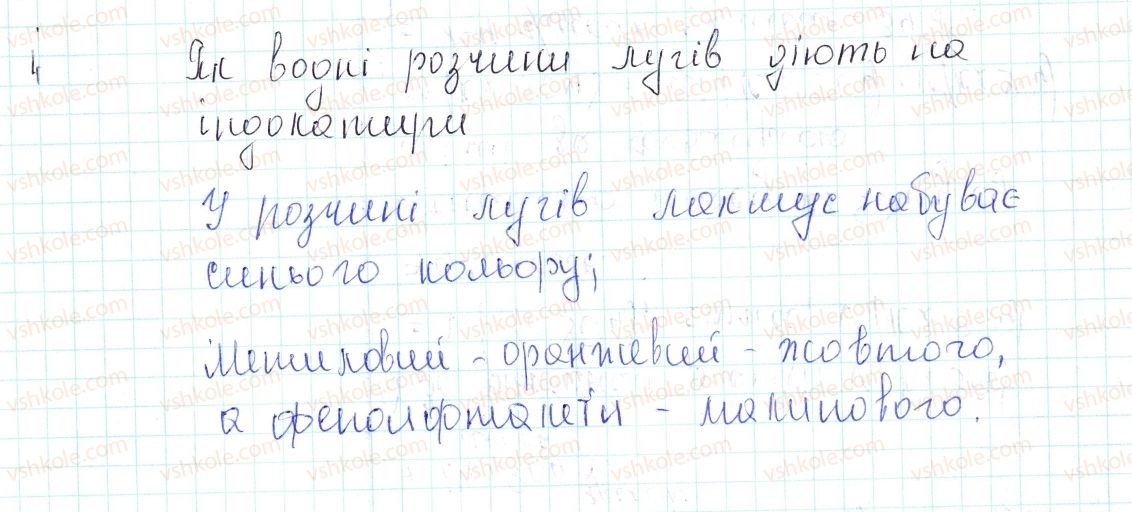 4 Як водні розчини лугів діють на
індокатири
У розчині лугів лакмус набуває
синього кольору;
Метиловий - оранжевий - жовтого,
а фенолфталеїн - малинового.